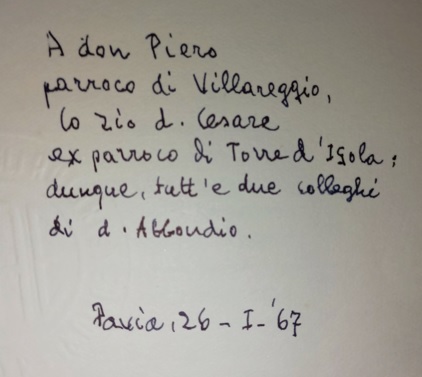 A don Piero
parroco di Villareggio,
lo zio d. Cesare
ex parroco di Torre d'Isola;
dunque, tutt'e due colleghi
di d. Abbondio.
Pavia, 26 - I - '67